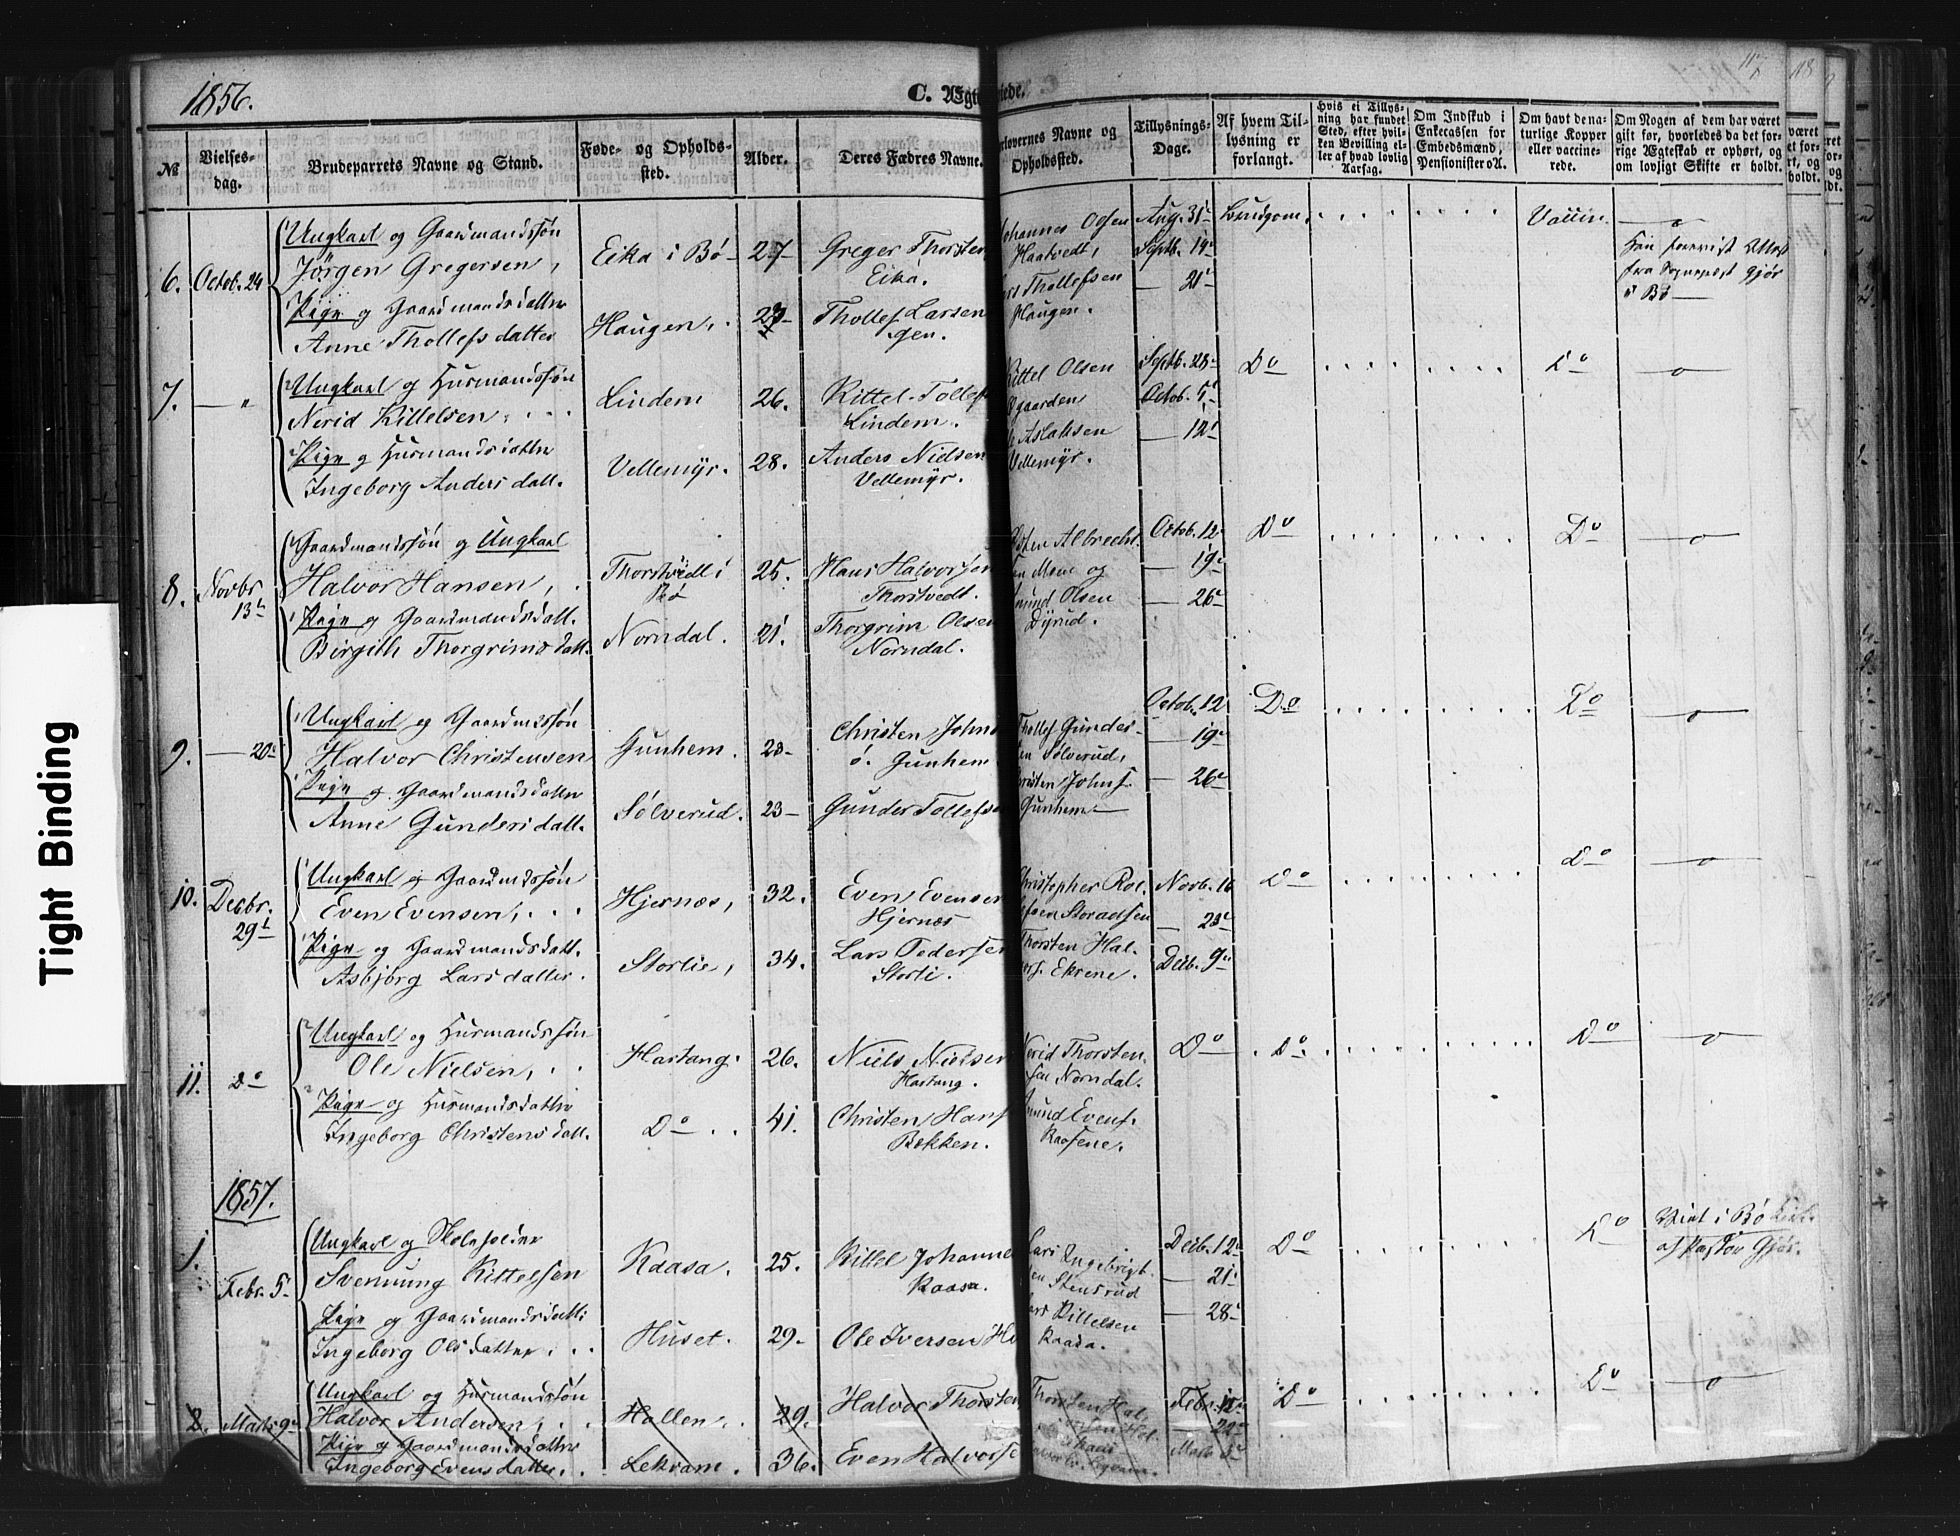 1856.
C. Ægte
iede.
117
118
№
Vielses-
dag.
Brudeparrets Navne og Stand.
Føde- og Opholds-
sted.
Alder.
Deres Fædres Navne.
orlovernes Navne og
Opholdssted.
Tillysnings-
Dage.
Af hvem Til-
lysning er
forlangt.
Hvis ei Tillys-
ning har fundet
Sted, efter hvil-
ken Bevilling el-
ler af hvad lovlig
Aarsag.
Om Indskud i
Enkecassen for
Embedsmænd,
Pensionister o.A.
Om havt de na-
turlige Kopper
eller vaccine-
rede.
Om Nogen af dem har været
gift før, hvorledes da det for-
rige Ægteskab er ophørt, og
om lovligt Skifte er holdt.
6. Octob. 24
Ungkarl og Gaardmandssøn
Jörgen Gregersen,
Pige og Gaardmandsdatter
Anne Thollefsdatter
Eika i Bø
Haugen.
27
23
Greger Thorsten
Eika.
Thollef Larsen
gen.
Johannes Olsen
Haatvedt,
Thollefsen
Haugen.
Aug. 31
Septb. 14
— 21
Brudgom.
Vaccin.
fra Sognepræst Gjør
i Bø
7. — "
Ungkarl og Husmandssøn
Nerid Kittelsen,
Pige og Husmandsdatter
Ingeborg Andersdatt.
Lindem
Vellemyr.
26.
28.
Kittel Tollefs
Lindem.
Anders Nielsen
Vellemyr.
Kittel Olsen
gaarden
Aslaksen
Vellemyr.
Septb. 28
Octob. 5
— 12
Do
Do
8. Novbr. 13
Gaardmandssøn og Ungkarl
Halvor Hansen,
Pige og Gaardmandsdatt.
Birgith Thorgrimsdatt.
Thorstvedt i
Bø
Norndal.
25.
21.
Hans Halvorsen
Thorstvedt.
Thorgrim Olsen
Norndal.
sten Albrecht-
sen Moe og
mund Olsen
Dyrud.
Octob. 12
— 19
— 26
Do
Do
9. — 20
Ungkarl og Gaardmdssøn
Halvor Christensen
Pige og Gaardmandsdatter
Anne Gundersdatt.
Gunhem.
Sølverud.
23
23
Christen Johns
ö. Gunhem
Gunder Tollefsen
Thollef Gunder-
sen Sølverud,
Christen Johns
Gunhem
Octob. 12
— 19
— 26
Do
Do
10. Decbr. 29
Ungkarl og Gaardmdssøn
Even Evensen,
Pige og Gaardmandsdatt.
Asbjørg Larsdatter.
Hjernæs,
Storlie,
32.
34.
Even Evensen
Hjernæs
Lars Pedersen
Storli
Christopher Rol-
Thorsten Hal-
vors. Ekrene.
Novb. 16
— 23
Decb. 9
Do
Do
11. Do
Ungkarl og Husmandssøn
Ole Nielsen,
Pige og Husmandsdatter
Ingeborg Christensdatt.
Hartang.
Do
26.
41.
Niels Nielsen
Hartang.
Christen Hans
Bekken.
Nerid Thorsten-
sen Norndal.
mund Evens.
Kaasene.
Do
Do
Do
1857.
1. Febr. 5
Ungkarl og Skoleholder
Svennung Kittelsen
Pige og Gaardmandsdatt:
Ingeborg Olsdatter
Kaasa.
Huset.
25.
29.
Kittel Johanne
Kaasa.
Ole Iversen H
Lars Ingebrigt-
sen Stensrud
Lars Kittelsen
Kaasa.
Decb. 12
— 21
— 28
Do
Do
Viet i Bø Kirke
af Pastor Gjør.
2. Marts 9
Ungkarl og Husmandssøn
Halvor Andersen,
Pige og Gaardmandsdatter
Ingeborg Evensdatter.
Hollen.
Lekvam.
29.
36.
Halvor Thorsten
Even Halvorse
Thorsten Hal-
Febr. 15
— 22
Marts
Do
Do
Tight Binding